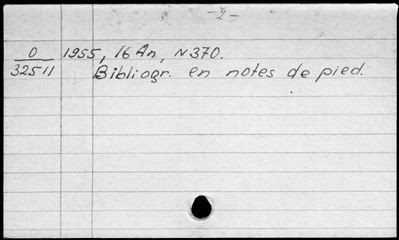 -2-
0 1955, 16 An, N 370.
32511 Bibliogr. en notes de pied.